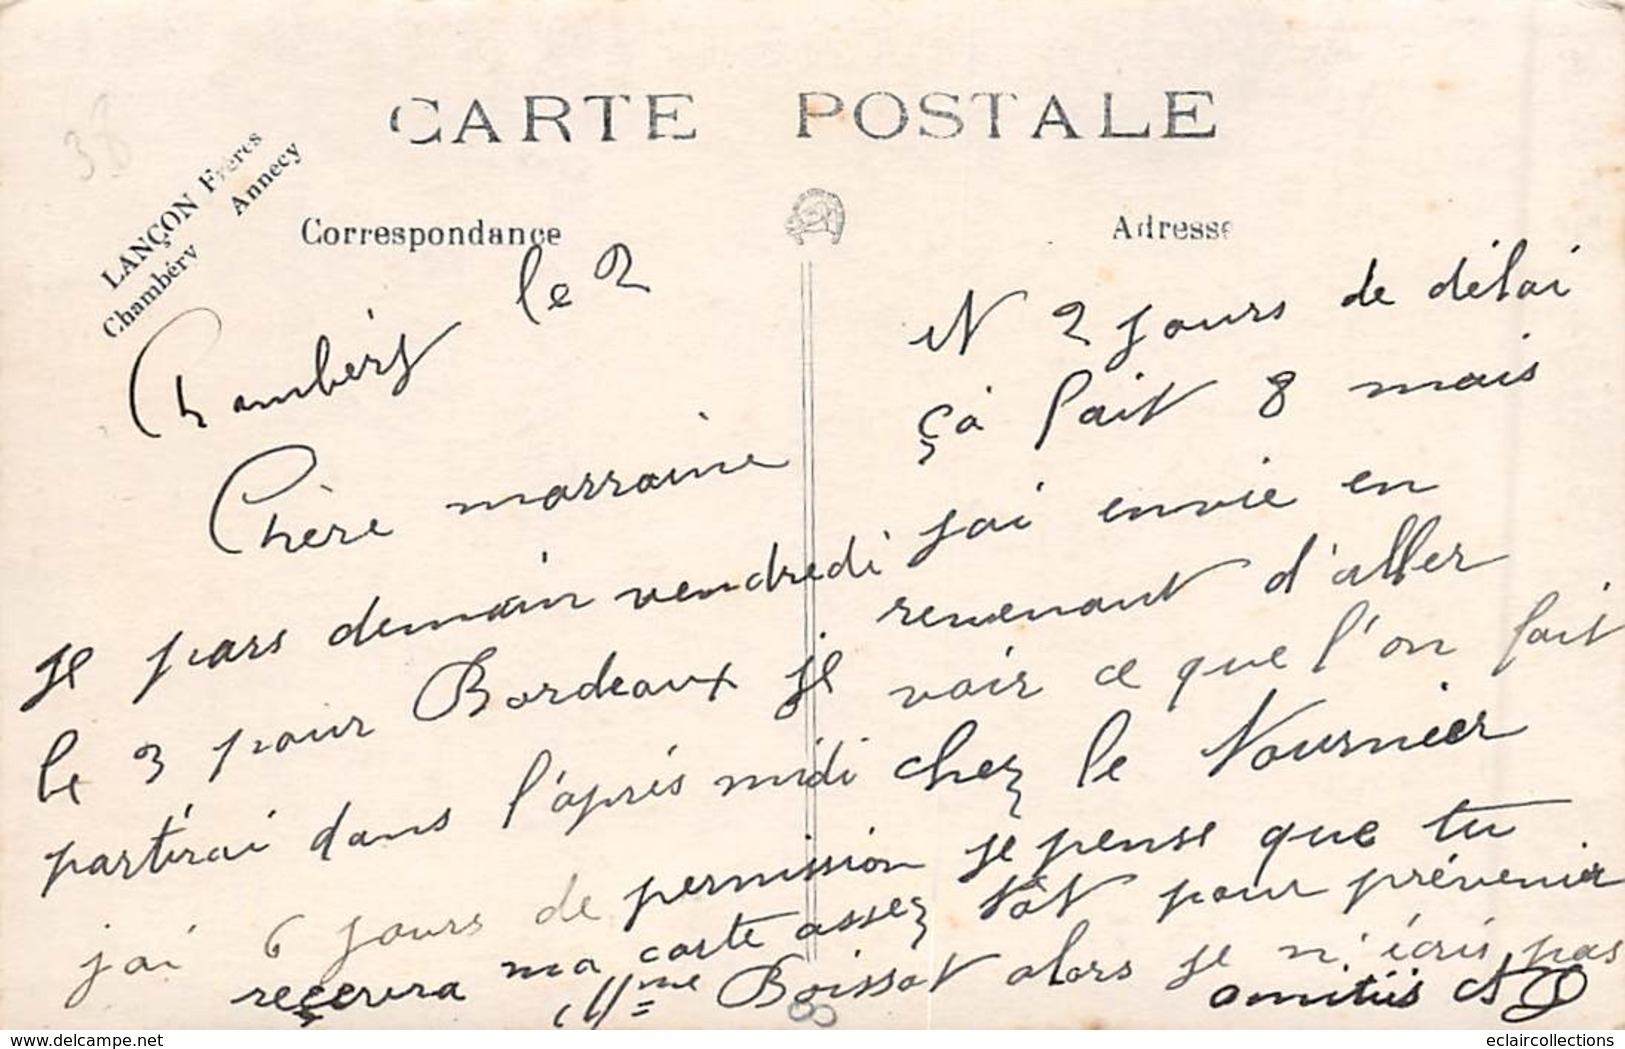 CARTE POSTALE
38
LANÇON Frères
Chambéry Annecy
Correspondance
Adresse
Chambéry le 2
Chère marraine
je pars demain vendredi
le 3 pour Bordeaux je
partirai dans l'après midi
j'ai 6 jours de permission
et 2 jours de délai
ça fait 8 mais
j'ai envie en
revenant d'aller
voir ce que l'on fait
chez le Tournier
je pense que tu
reçevera ma carte assez tôt pour prévenir
Mme Boissat alors je n'écris pas
amitiés
eclaircollections
www.delcampe.net